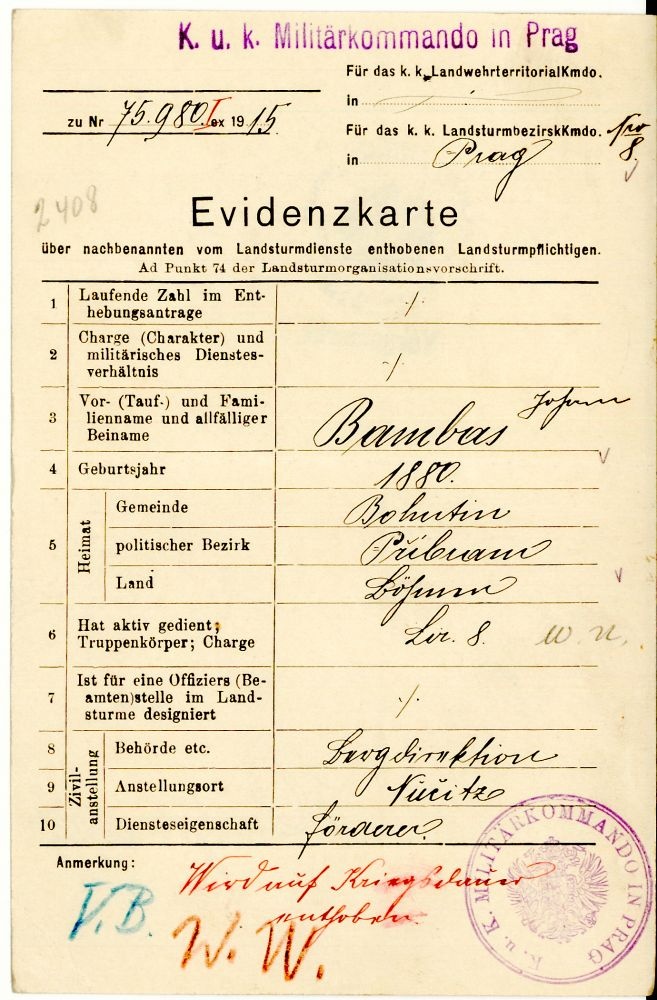 K. u. k. Militärkommando in Prag
Für das k. k. LandwehrterritorialKmdo.
in
zu Nr 75.980.I ex 1915.
Für das k. k. LandsturmbezirskKmdo. Nro 8.
in Prag
2408
Evidenzkarte
über nachbenannten vom Landsturmdienste enthobenen Landsturmpflichtigen.
Ad Punkt 74 der Landsturmorganisationsvorschrift.
1 Laufende Zahl im Ent-
hebungsantrage ·/·
2 Charge (Charakter) und
militärisches Dienstes-
verhältnis ·/·
3 Vor- (Tauf-) und Fami-
lienname und allfälliger
Beiname Bambas Johann
4 Geburtsjahr 1880.
5 Heimat
Gemeinde Bohutin
politischer Bezirk Přibram
Land Böhmen
6 Hat aktiv gedient;
Truppenkörper; Charge Lir. 8.
7 Ist für eine Offiziers (Be-
amten)stelle im Land-
sturme designiert ·/·
Zivil-
anstellung
8 Behörde etc. Bergdirektion
9 Anstellungsort Nučitz
10 Diensteseigenschaft Förderer.
Anmerkung: Wird auf Kriegsdauer
enthoben.
V.B.
W. W.
K. u. K. MILITÄRKOMMANDO IN PRAG